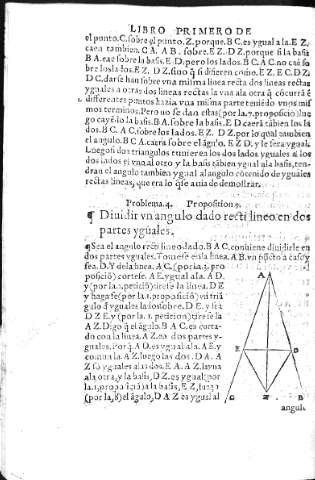 LIBRO PRIMERO DE
el punto. C. sobre el punto. Z. porque. B C. es ygual a la. E Z.
caera tambien. C A. A B. sobre. E Z. D Z. porque si la basis
B A. cae sobre la basis. E D. pero los lados. B A C A. no caē so
bre los lados. E Z. D Z. sino q̄ si difierē como. E Z. E C. D Z.
D C. darse han sobre vna misma linea recta dos lineas rectas
yguales a otras dos lineas rectas la vna ala otra q̄ cōcurrā ē
differentes puntos hazia vna misma parte teniēdo vnos mis
mos terminos. Pero no se dan estas (por la. 7. proposiciō) lue
go cayēdo la basis. B A. sobre la basis. E D. caerā tābien los la
dos. B A. C A. sobre los lados. E Z. D Z. por lo qual tambien
el angulo. B C A. caera sobre el āgulo. E Z D. y le sera ygual.
Luego si dos triangulos tuuieren los dos lados yguales a los
dos lados el vno al otro y la basis tābien ygual ala basis, ten-
dran el angulo tambien ygual al angulo cōtenido de yguales
rectas lineas, que era lo q̄ se auia de demostrar.
Problema. 4. Proposition. 9.
¶ Diuidir vn angulo dado recti lineo en dos
partes yguales.
¶ Sea el angulo recti lineo dado. B A C. conuiene diuidirle en
dos partes yguales. Tomese en la linea. A B. vn pūcto a caso y
sea. D. Y de la linea. A C. (por la. 3. pro
posiciō) cortese. A E. ygual a la. A D.
y (por la. 1. peticiō) tirese la linea. D E
y haga se (por la. 1. proposiciō) vn triā
gulo
D Z E. y (por la. 1. peticion) tirese la
A Z. Digo q̄ el āgulo. B A C. es corta-
do con la linea. A Z. en dos partes y-
guales. Porq̄. A D. es ygual a la. A E. y
comun la. A Z. luego las dos. D A. A
Z. sō yguales a las dos. E A. A Z. la vna
ala otra, y la basis. D Z. es ygual (por
la basis, E Z, luego
(por la, 8) el āgulo, D A Z es ygual al
A
E D
G Z B
angulo